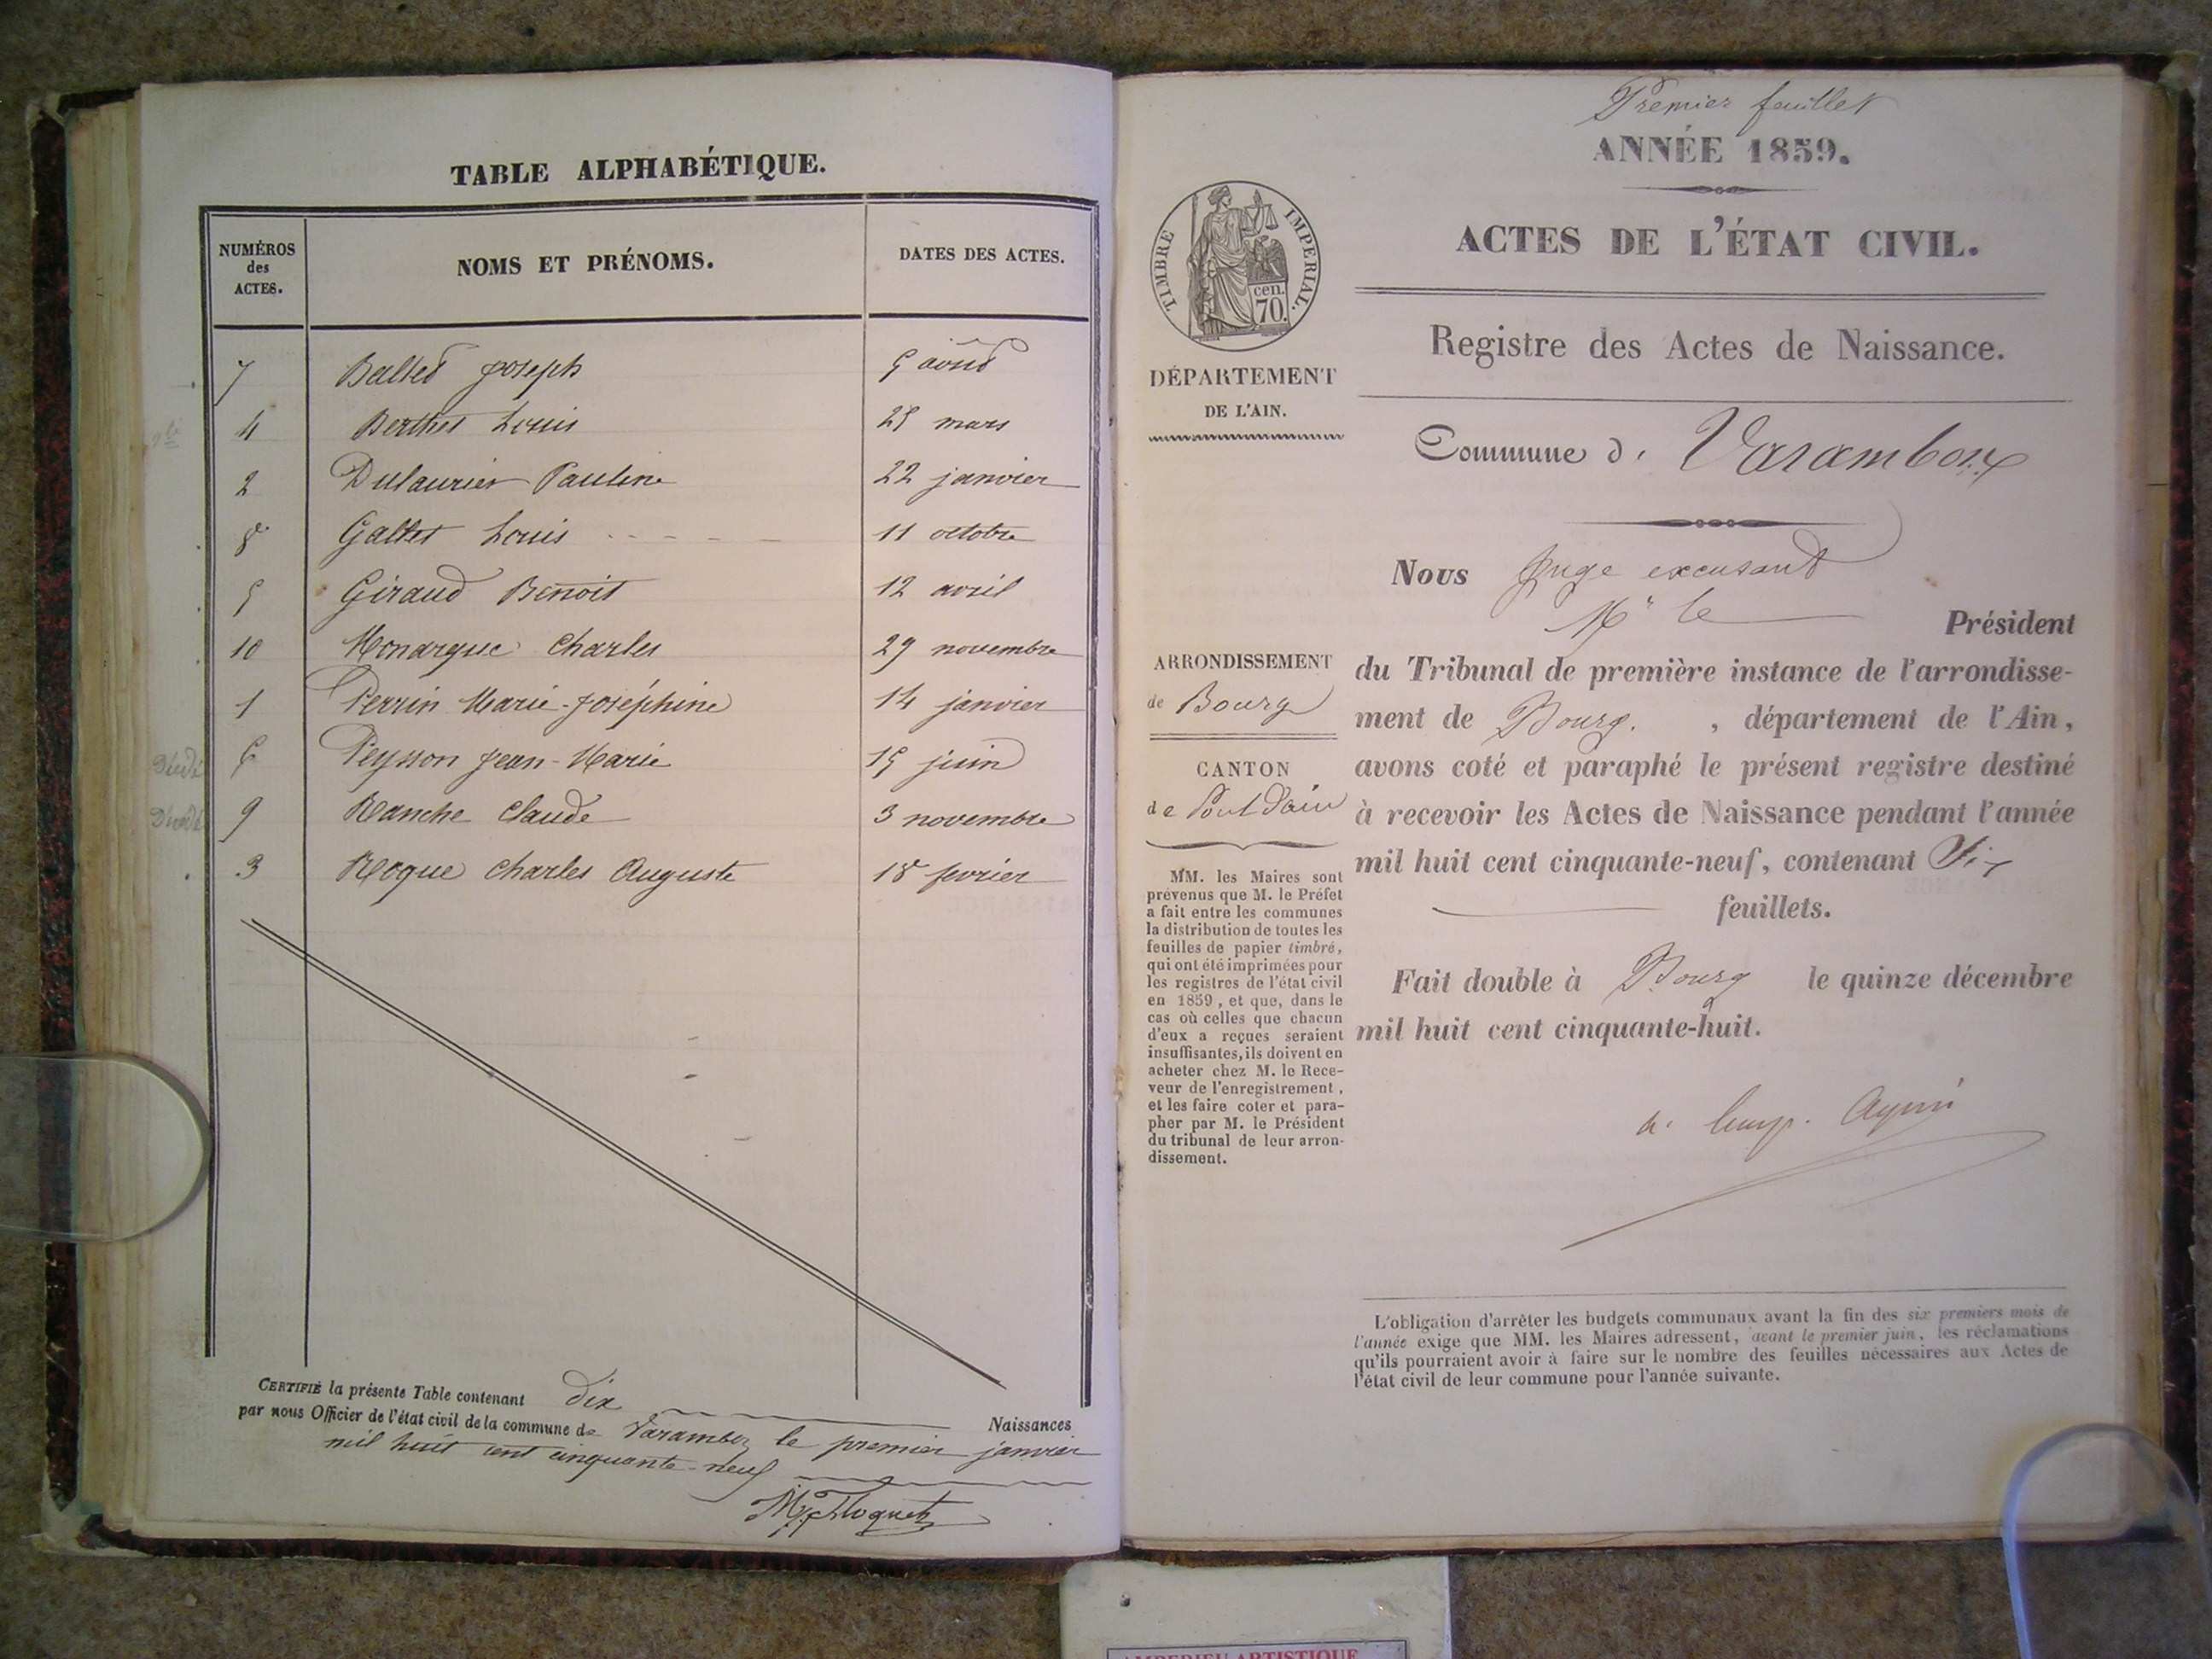 TABLE ALPHABÉTIQUE.
NUMÉROS des ACTES. NOMS ET PRÉNOMS. DATES DES ACTES.
7 Joseph 5 août
4 Berthet Louis 25 mars
2 Dulaurier Pauline 22 janvier
8 Galtet Louis 11 octobre
5 Giraud Benoit 12 avril
10 Monarque Charles 29 novembre
1 Perrin Marie-Joséphine 14 janvier
6 Peysson Jean-Marie 15 juin
9 Ranche Claude 3 novembre
3 Roque Charles Auguste 18 fevrier
CERTIFIÉ la présente Table contenant dix Naissances
par nous Officier de l'état civil de la commune de Varambon le premier janvier
mil huit cent cinquante-neuf
Floquet
Premier feuillet
ANNÉE 1859.
ACTES DE L'ÉTAT CIVIL.
TIMBRE IMPERIAL.
cen.
70.
DÉPARTEMENT
DE L'AIN.
Registre des Actes de Naissance.
Commune d. Varambon
Nous Juge excusant
Mr le Président
ARRONDISSEMENT
de Bourg
CANTON
de Pont d'ain
du Tribunal de première instance de l'arrondisse-
ment de Bourg. , département de l'Ain,
avons coté et paraphé le présent registre destiné
à recevoir les Actes de Naissance pendant l'année
mil huit cent cinquante-neuf, contenant Six
feuillets.
Fait double à Bourg le quinze décembre
mil huit cent cinquante-huit.
MM. les Maires sont
prévenus que M. le Préfet
a fait entre les communes
la distribution de toutes les
feuilles de papier timbré,
qui ont été imprimées pour
les registres de l'état civil
en 1859, et que, dans le
cas où celles que chacun
d'eux a reçues seraient
insuffisantes, ils doivent en
acheter chez M. le Rece-
veur de l'enregistrement,
et les faire coter et para-
pher par M. le Président
du tribunal de leur arron-
dissement.
L'obligation d'arrêter les budgets communaux avant la fin des six premiers mois de
l'année exige que MM. les Maires adressent, avant le premier juin, les réclamations
qu'ils pourraient avoir à faire sur le nombre des feuilles nécessaires aux Actes de
l'état civil de leur commune pour l'année suivante.
ARTISTIQUE